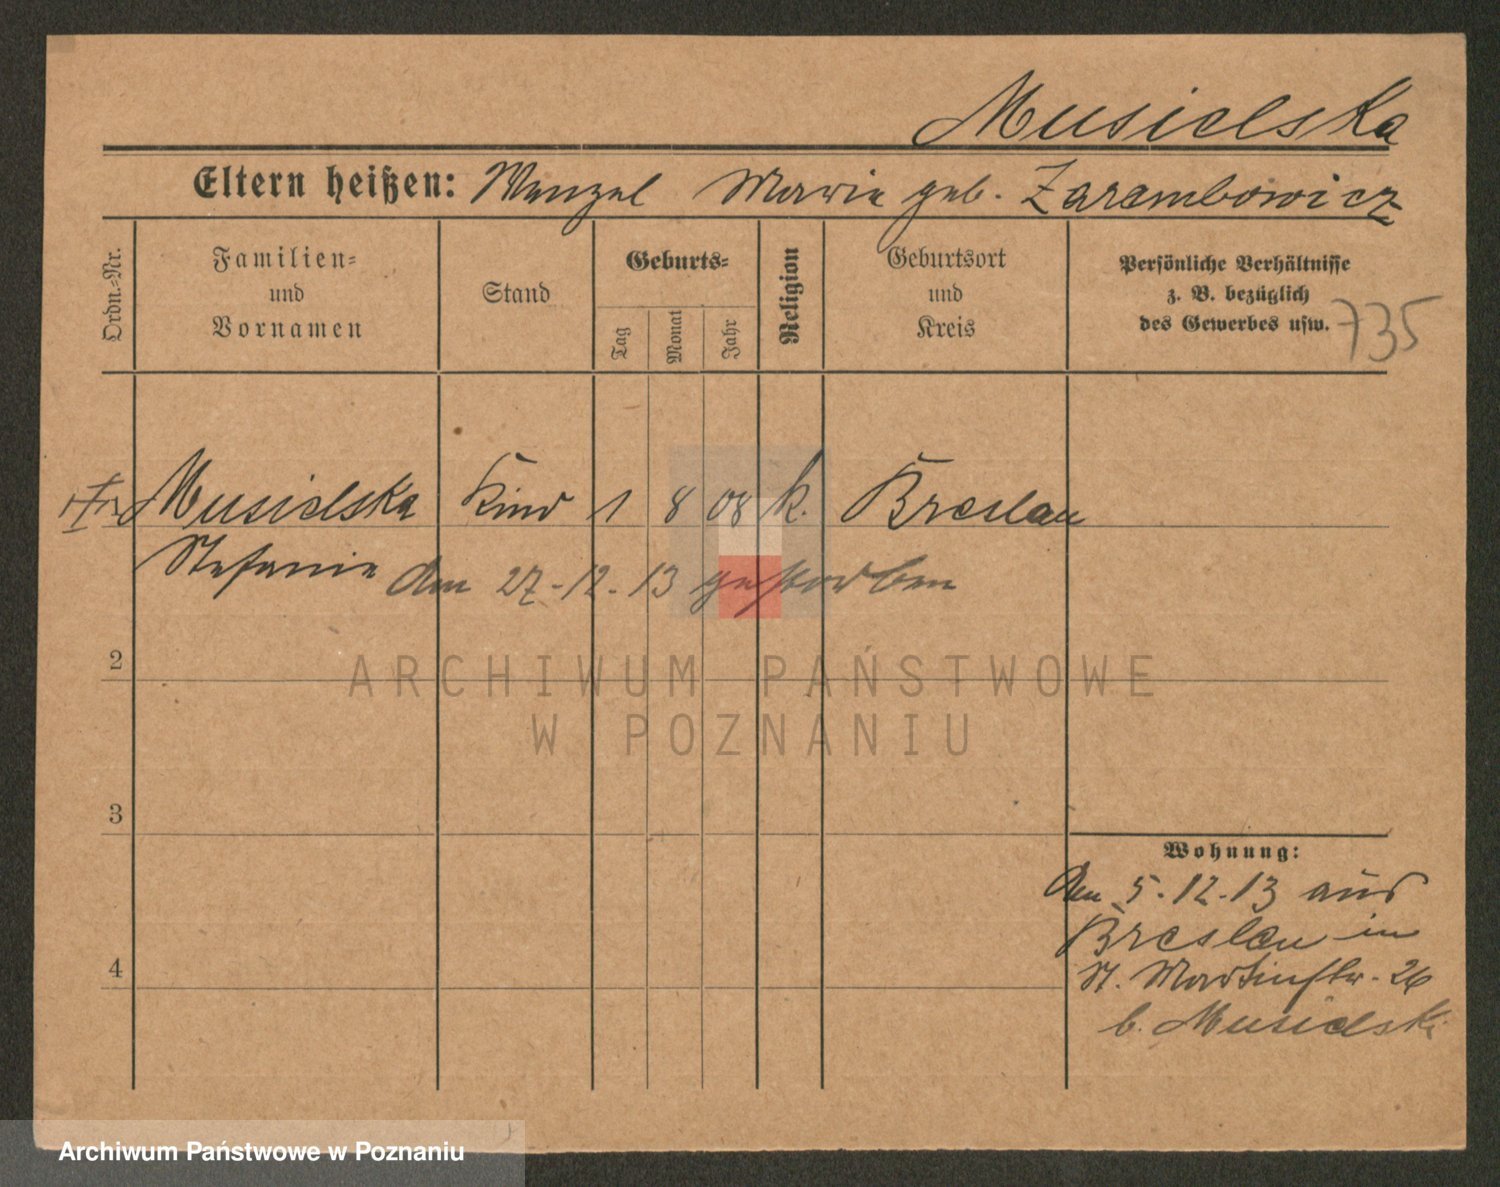 Musielska
Eltern heißen: Wenzel Marie geb. Zarembowicz
Ordn.-Nr.
Familien-
und
Vornamen
Stand
Geburts-
Tag
Monat
Jahr
Religion
Geburtsort
und
Kreis
Persönliche Verhältnisse
z. B. bezüglich
des Gewerbes usw.
735
Musielska Kind 1 8 08 k. Breslau
Stefanie den 27-12-13 gestorben
2
3
4
Wohnung:
den 5.12.13 aus
Breslau in
St. Martinstr. 26
b. Musielski
ARCHIWUM PAŃSTWOWE
W POZNANIU
Archiwum Państwowe w Poznaniu